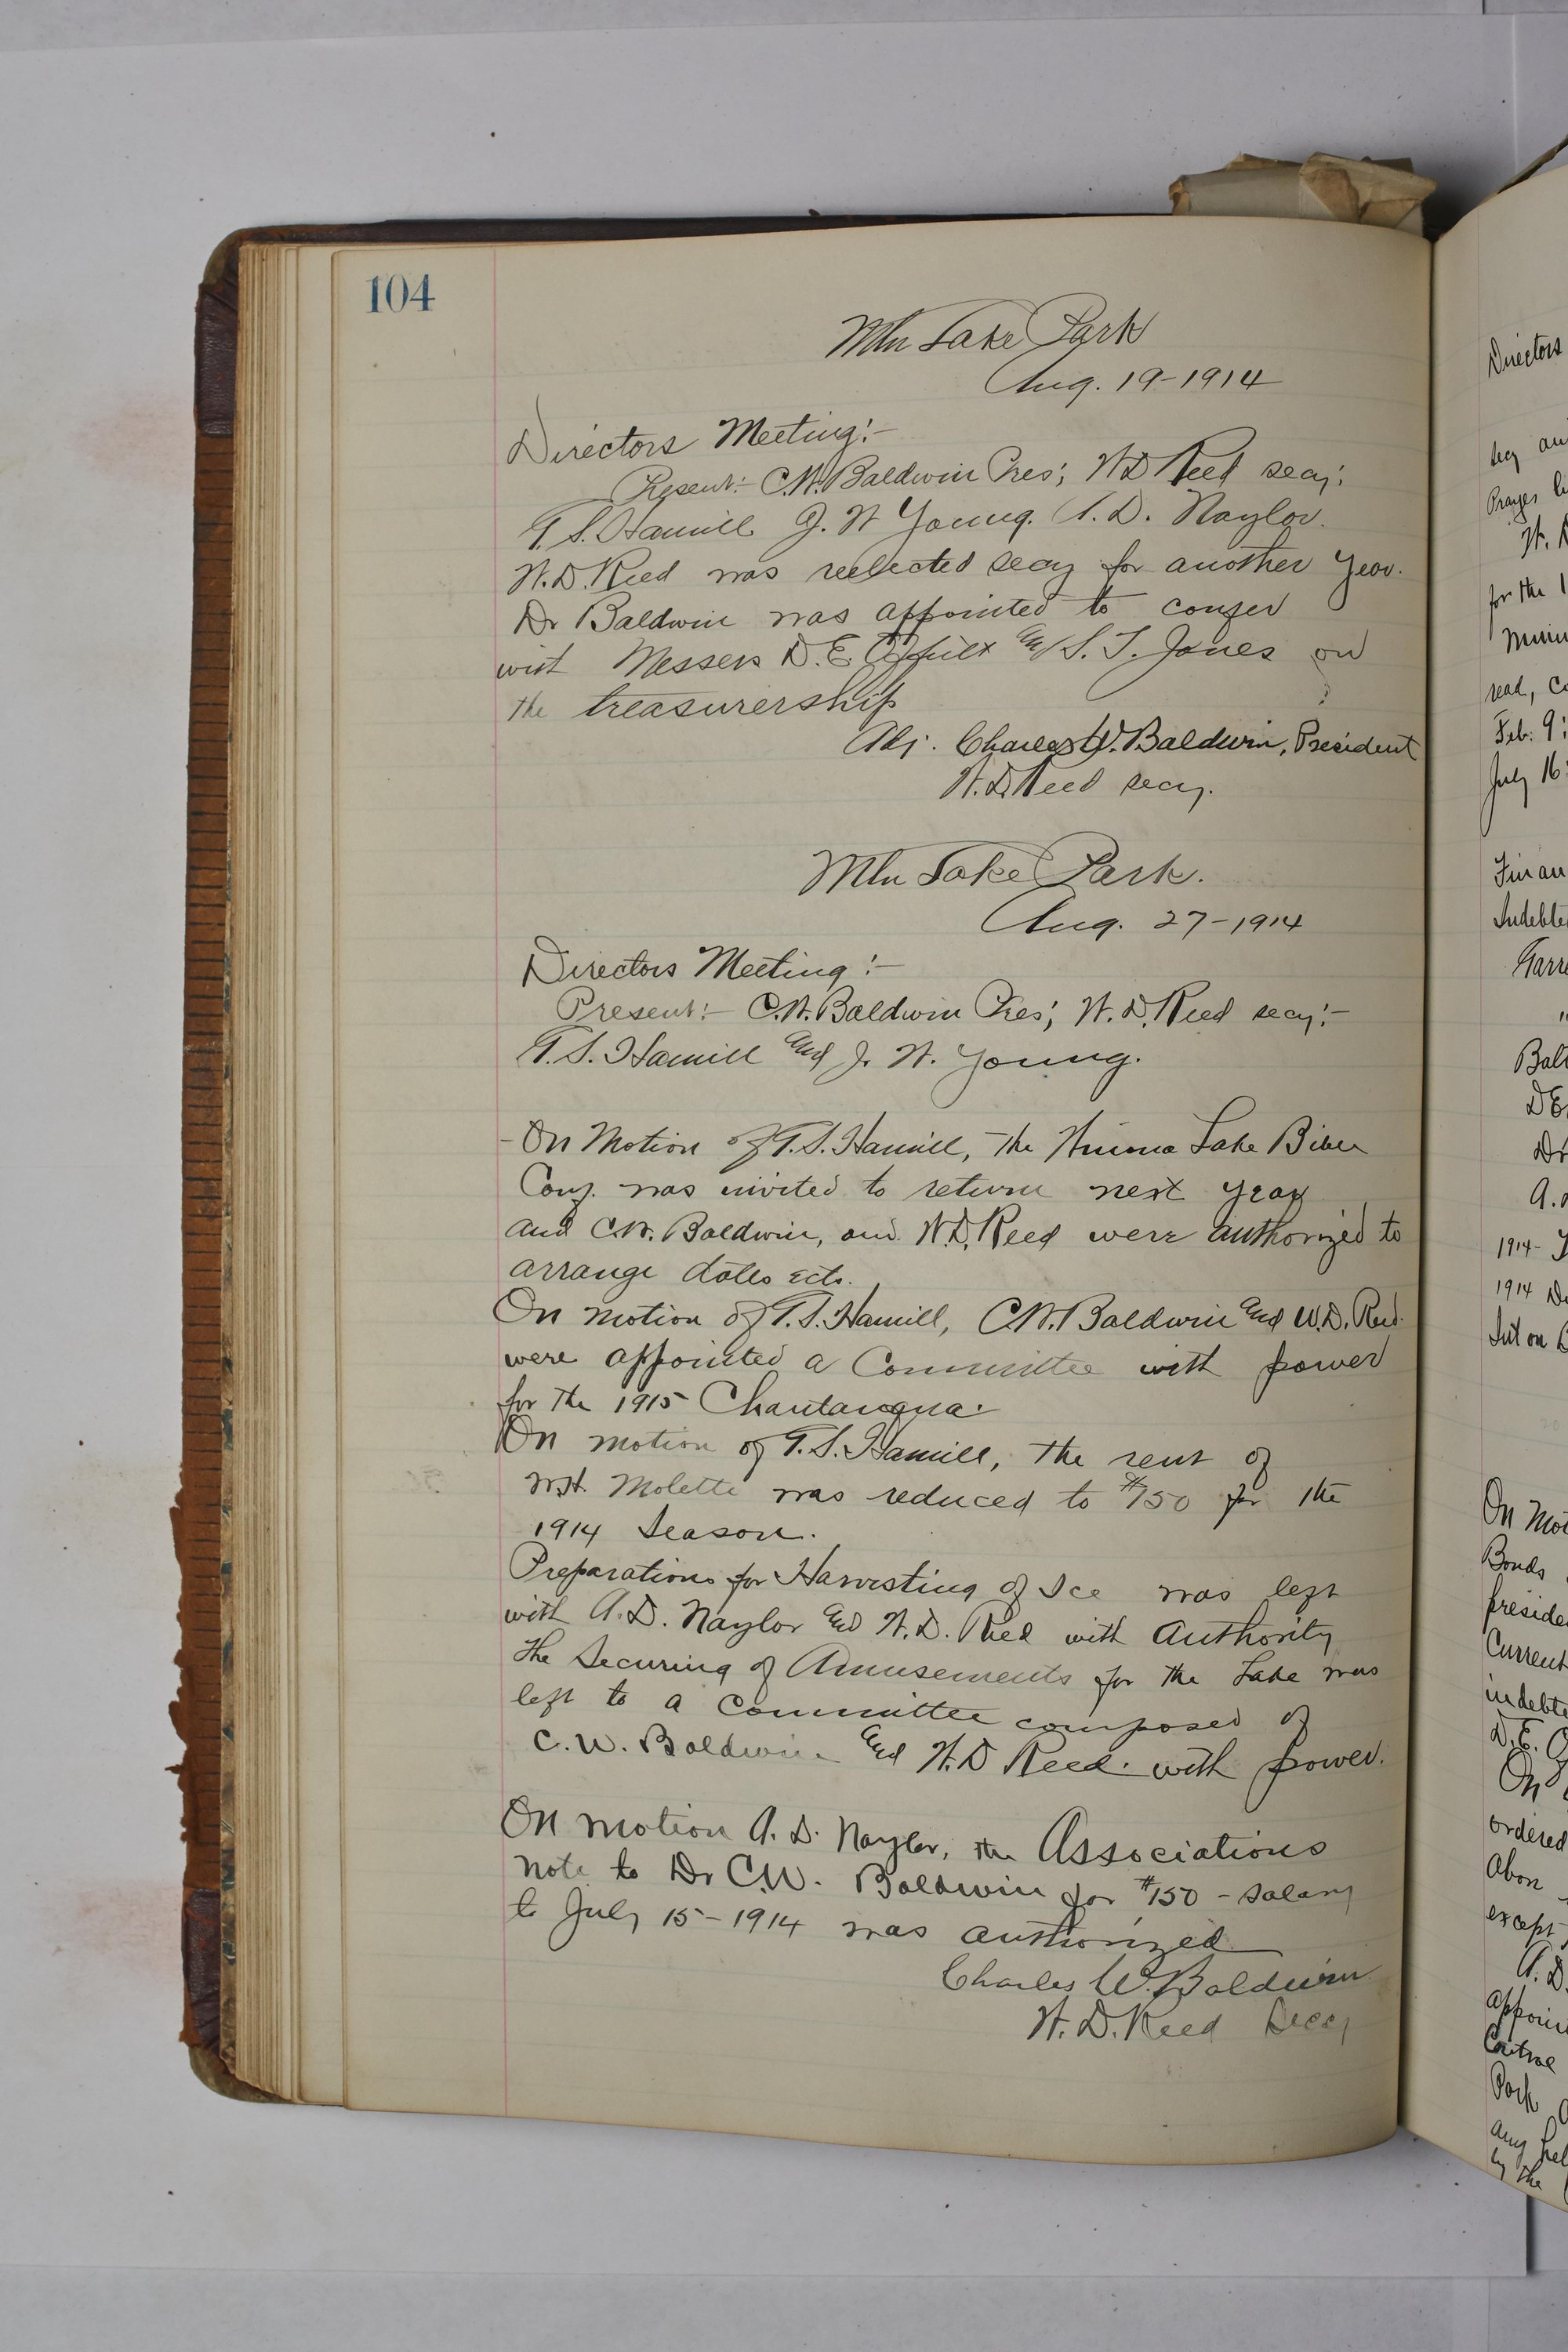 104
Mtn Lake Park
Aug. 19-1914
Directors Meeting:-
Present:- C.W. Baldwin Pres; W D Reed secy;
T. S. Hamill J. W Young. A. D. Naylor.
W. D. Reed was reelected secy for another year.
Dr Baldwin was appointed to confer
with Messers D. E. Offutt and S. T. Jones on
the treasurership
Adj. Charles W. Baldwin, President
W. D. Reed secy.
Mtn Lake Park.
Aug. 27-1914
Directors Meeting:-
Present:- C. W. Baldwin Pres; W. D. Reed secy:-
T. S. Hamill and J. W. Young.
- On Motion of T. S. Hamill, the Winona Lake Bible
Conf. was invited to return next year
and C. W. Baldwin, and W. D. Reed were authorized to
arrange dates ects.
On motion of T. S. Hamill, C. W. Baldwin and W. D. Reed.
were appointed a Committee with power
for the 1915 Chautauqua.
On motion of T. S. Hamill, the rent of
W. H. Molette was reduced to $750 for the
1914 Season.
Preparations for Harvesting of Ice was left
with A. D. Naylor and W. D. Reed with Authority
The Securing of Amusements for the Lake was
left to a Committee composed of
C. W. Baldwin and W. D Reed. with power.
On motion A. D. Naylor, the Associations
note to Dr C. W. Baldwin for $150 - salary
to July 15-1914 was authorized
Charles W. Baldwin
W. D. Reed Secy
Directors
secy
Prayer
W. D
for the 1
read,
Feb. 9;
July 16
Garre
D E
Dr
A.
1914-
1914
On Mot
Bonds
preside
Current
indebte
D. E. O
On
ordered
except
A. D.
appoin
Control
Park
any
by the